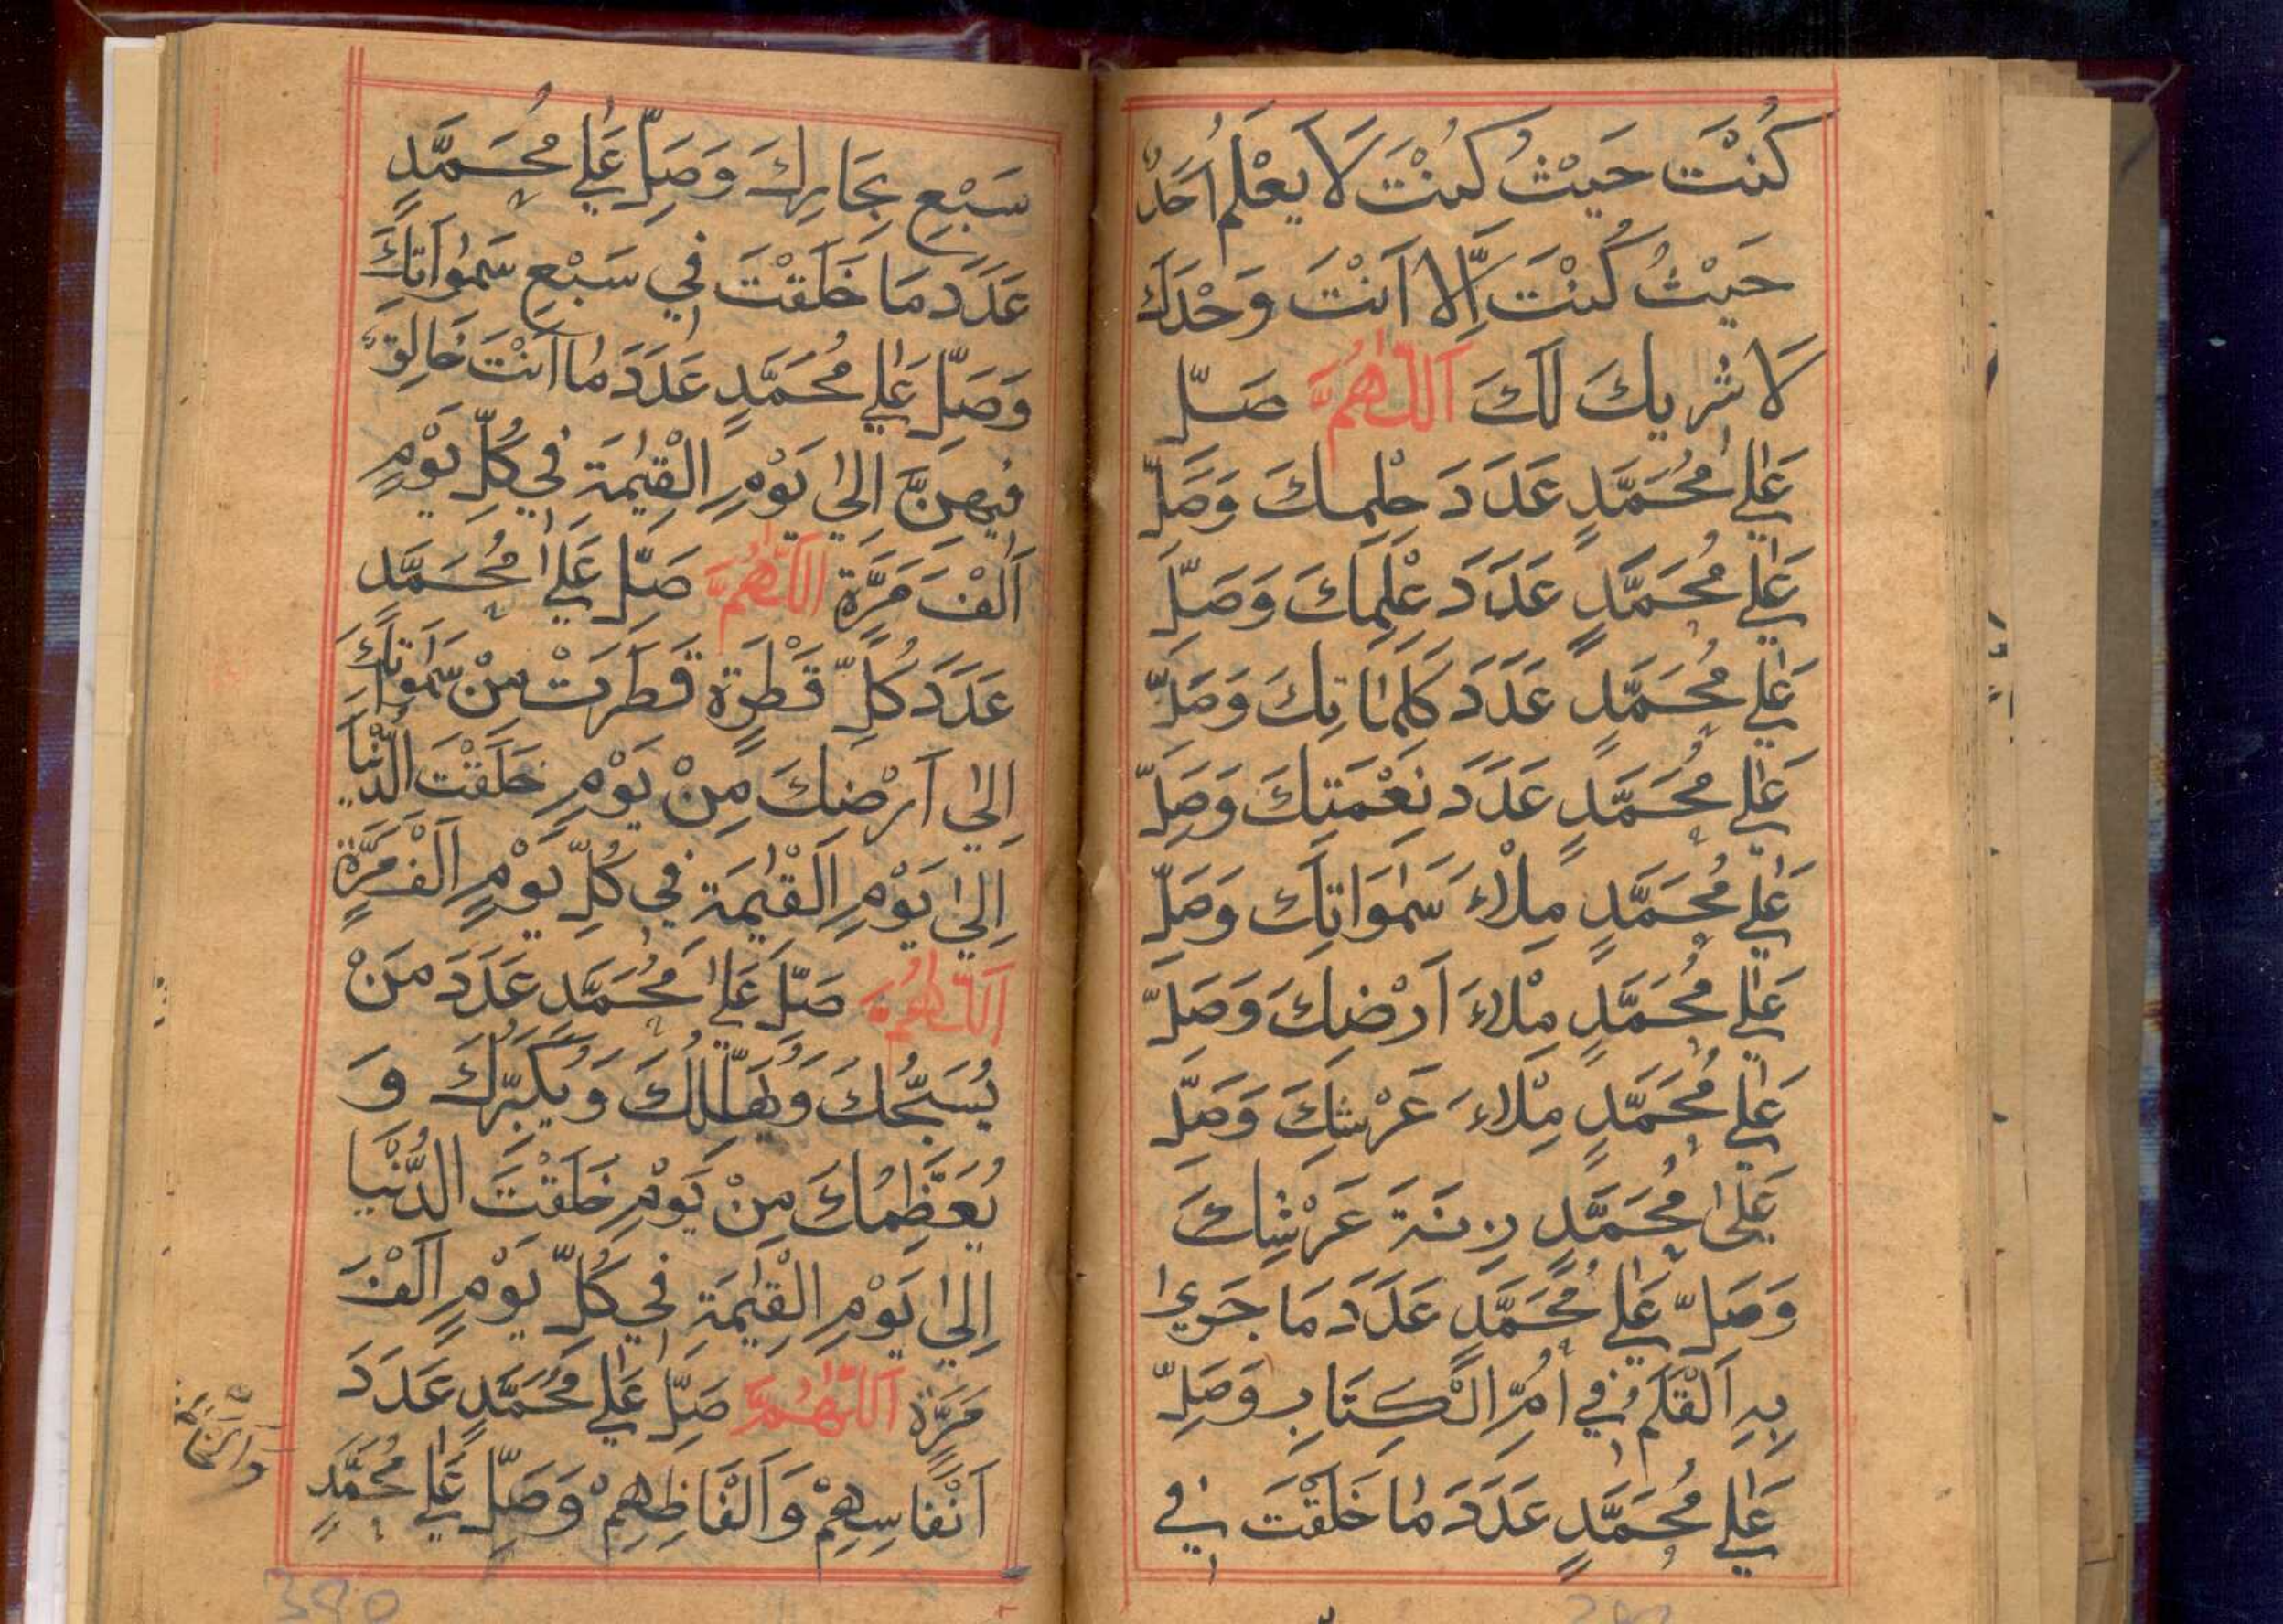 كُنْتَ حَيْثُ كُنْتَ لَا يَعْلَمُ اَحَدٌ
حَيْثُ كُنْتَ اِلَّا اَنْتَ وَحْدَكَ
لَا شَرِيكَ لَكَ اَللّٰهُمَّ صَلِّ
عَلٰي مُحَمَّدٍ عَدَدَ حِلْمِكَ وَصَلِّ
عَلٰي مُحَمَّدٍ عَدَدَ عِلْمِكَ وَصَلِّ
عَلٰي مُحَمَّدٍ عَدَدَ كَلِمَاتِكَ وَصَلِّ
عَلٰي مُحَمَّدٍ عَدَدَ نِعْمَتِكَ وَصَلِّ
عَلٰي مُحَمَّدٍ مِلْاءَ سَمٰوَاتِكَ وَصَلِّ
عَلٰي مُحَمَّدٍ مِلْاءَ اَرْضِكَ وَصَلِّ
عَلٰي مُحَمَّدٍ مِلْاءَ عَرْشِكَ وَصَلِّ
عَلٰى مُحَمَّدٍ زِنَةَ عَرْشِكَ
وَصَلِّ عَلٰي مُحَمَّدٍ عَدَدَ مَا جَرٰي
بِهِ اَلْقَلَمُ فِي اُمِّ الْكِتَابِ وَصَلِّ
عَلٰي مُحَمَّدٍ عَدَدَ مَا خَلَقْتَ فِي
سَبْعِ بِحَارِكَ وَصَلِّ عَلٰي مُحَمَّدٍ
عَدَدَ مَا خَلَقْتَ فِي سَبْعِ سَمٰوَاتِكَ
وَصَلِّ عَلٰي مُحَمَّدٍ عَدَدَ مَا اَنْتَ خَالِقٌ
فِيهِنَّ اِلٰي يَوْمِ الْقِيٰمَةِ فِي كُلِّ يَوْمٍ
اَلْفَ مَرَّةٍ اَللّٰهُمَّ صَلِّ عَلٰي مُحَمَّدٍ
عَدَدَ كُلِّ قَطْرَةٍ قَطَرَتْ مِنْ سَمٰوَاتِكَ
اِلٰي اَرْضِكَ مِنْ يَوْمِ خَلَقْتَ الدُّنْيَا
اِلٰي يَوْمِ الْقِيٰمَةِ فِي كُلِّ يَوْمٍ اَلْفَ مَرَّةٍ
اَللّٰهُمَّ صَلِّ عَلٰي مُحَمَّدٍ عَدَدَ مَنْ
يُسَبِّحُكَ وَيُهَلِّلُكَ وَيُكَبِّرُكَ وَ
يُعَظِّمُكَ مِنْ يَوْمِ خَلَقْتَ الدُّنْيَا
اِلٰي يَوْمِ الْقِيٰمَةِ فِي كُلِّ يَوْمٍ اَلْفَ
مَرَّةٍ اَللّٰهُمَّ صَلِّ عَلٰي مُحَمَّدٍ عَدَدَ
اَنْفَاسِهِمْ وَاَلْفَاظِهِمْ وَصَلِّ عَلٰي مُحَمَّدٍ
390